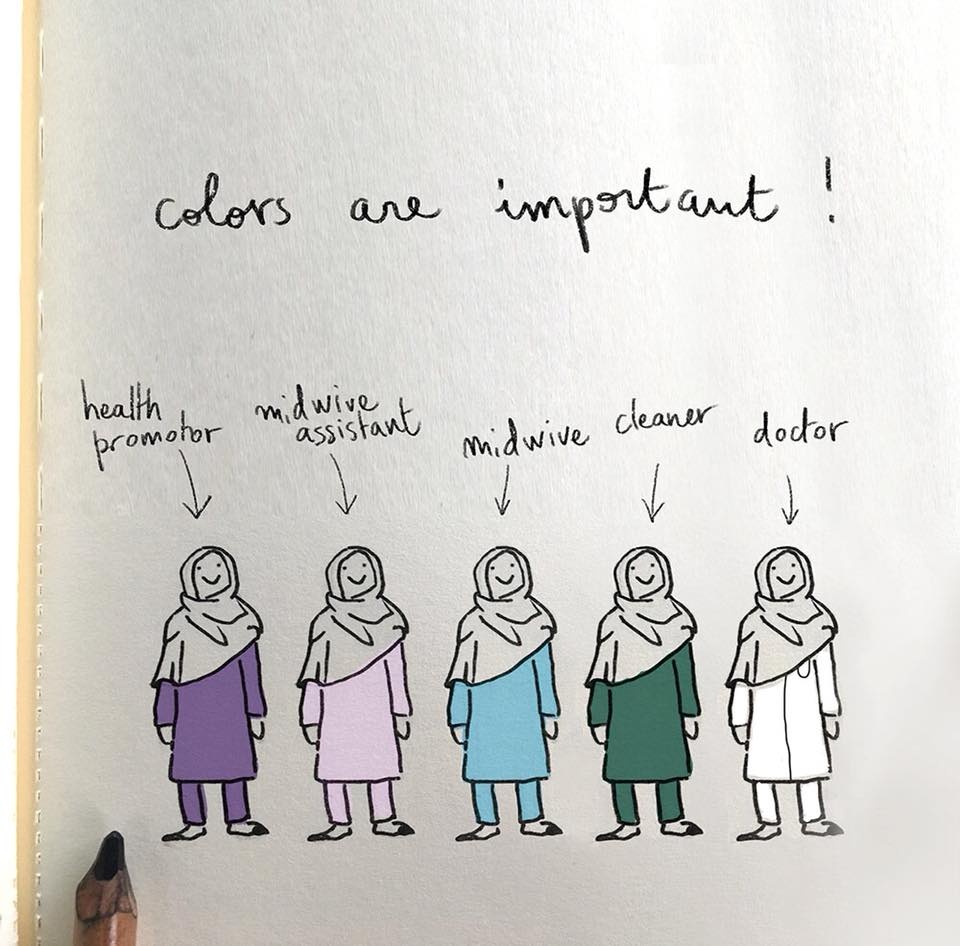 colors are important !
health
promotor
midwive
assistant
midwive
cleaner
doctor